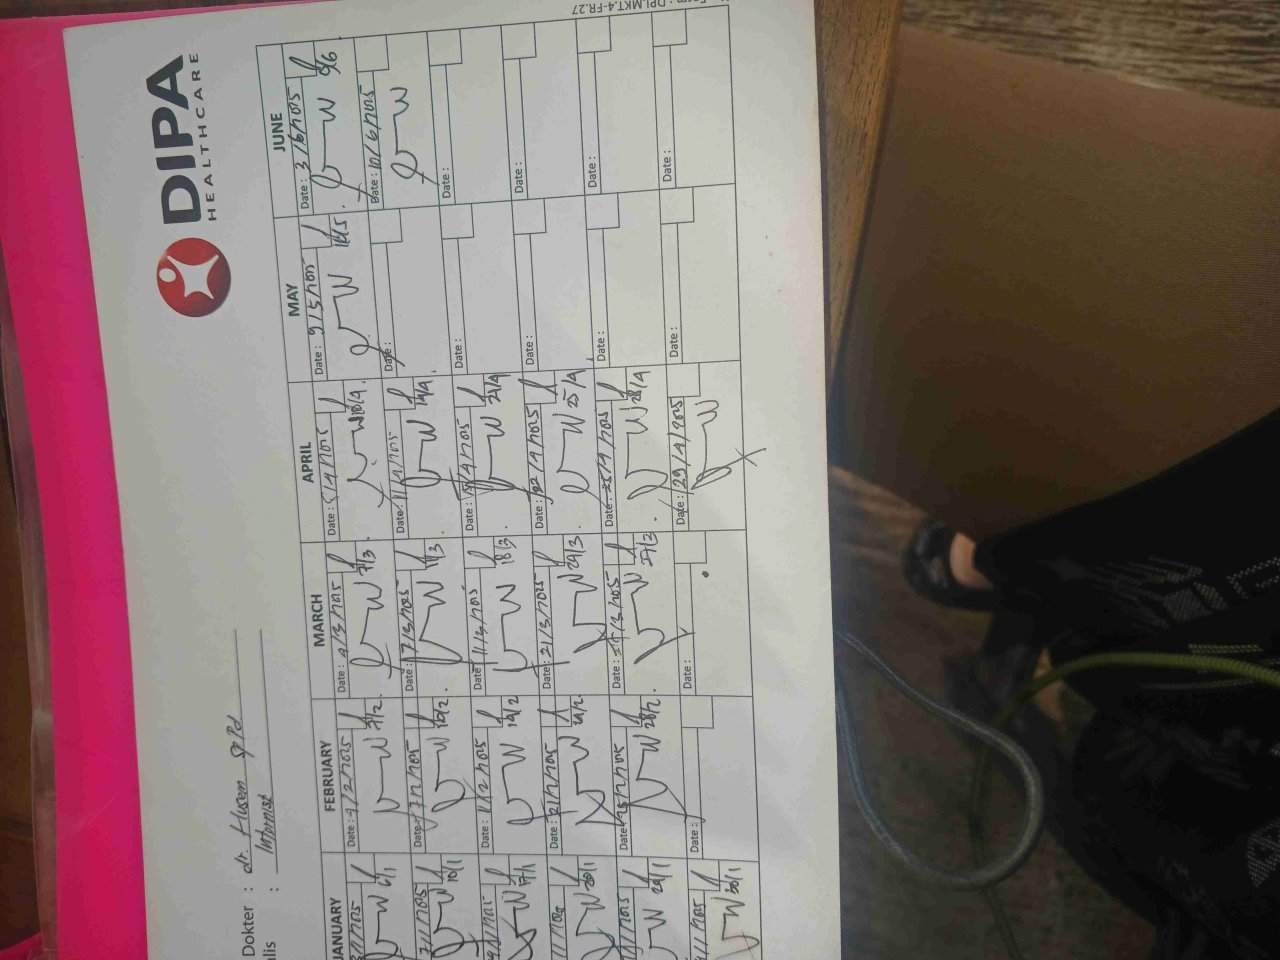 DIPA
HEALTHCARE
Dokter : dr. Husem SpPd
alis : Internist
JANUARY FEBRUARY MARCH APRIL MAY JUNE
Date : 4/2/2025 Date : 4/3/2025 Date : Date : 9/5/2025 Date : 3/6/2025
6/1 7/2 7/3 10/4 16/5 5/6
Date : 7/2/2025 Date : 7/3/2025 Date : 11/4/2025 Date : Date : 10/6/2025
10/1 10/2 11/3 14/4
Date : 11/2/2025 Date : 11/3/2025 Date : Date : Date :
17/1 14/2 18/3 21/4
Date : 21/2/2025 Date : 21/3/2025 Date : 22/4/2025 Date : Date :
20/1 24/2 24/3 25/4
Date : 25/2/2025 Date : Date : 25/4/2025 Date : Date :
24/1 28/2 27/3 28/4
Date : Date : Date : 29/4/2025 Date : Date :
30/1
Form : DPI.MKT.4-FR.27